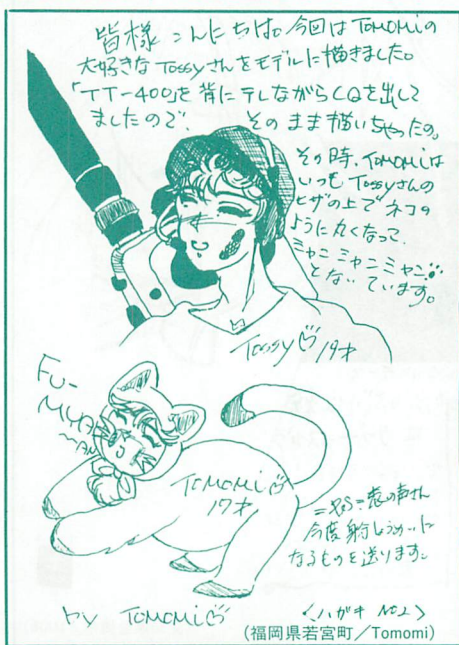 皆様こんにちは。今回はTOMOMIの
大好きなTossyさんをモデルに描きました。
「TT-400」を背にテレながらCQを出して
ましたので、そのまま描いちゃったの。
その時、TOMOMIは
いつもTossyさんの
ヒザの上でネコの
ように丸くなって、
ミャニミャニミャニ
とないています。
Tossy♡19才
FU-
MYA
~AN
TOMOMI♡
17才
今度
なるものを送ります。
by TOMOMI♡
<ハガキ No.2>
(福岡県若宮町/Tomomi)